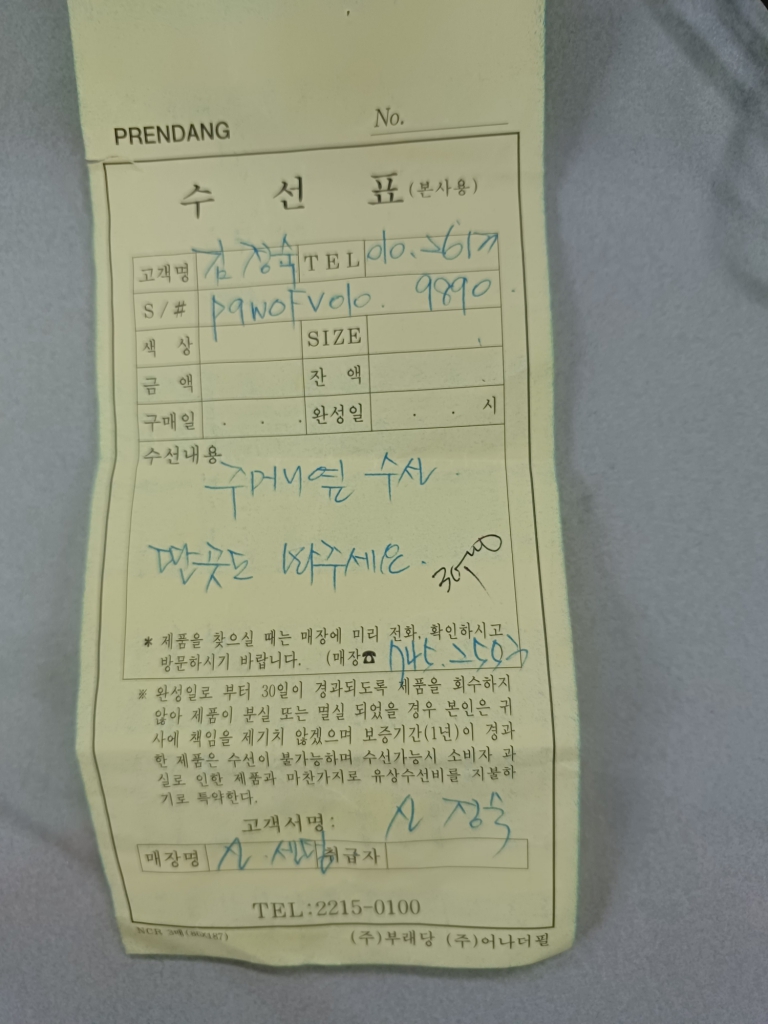 PRENDANG
No.
수 선 표 (본사용)
고객명 김 정숙 TEL 010.
S/# 9890
색 상 SIZE
금 액 잔 액
구매일 . . . 완성일 . . 시
수선내용
주머니옆 수선
딴곳도 봐주세요.
* 제품을 찾으실 때는 매장에 미리 전화, 확인하시고
방문하시기 바랍니다. (매장☎
※ 완성일로 부터 30일이 경과되도록 제품을 회수하지
않아 제품이 분실 또는 멸실 되었을 경우 본인은 귀
사에 책임을 제기치 않겠으며 보증기간(1년)이 경과
한 제품은 수선이 불가능하며 수선가능시 소비자 과
실로 인한 제품과 마찬가지로 유상수선비를 지불하
기로 특약한다.
고객서명: 정숙
매장명 취급자
TEL:2215-0100
(주)부래당 (주)어나더필